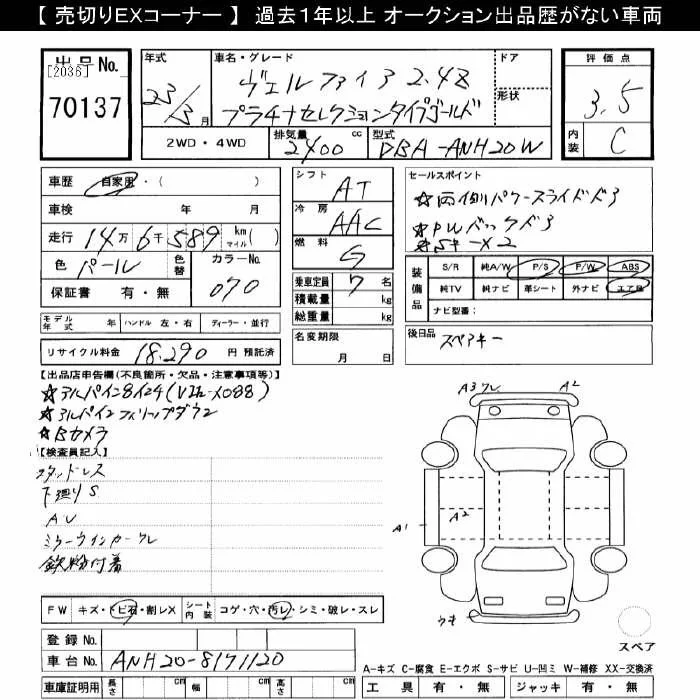 【 売切りEXコーナー 】 過去1年以上 オークション出品歴がない車両
出品No.
[2036]
70137
年式
23/3月
車名・グレード
ヴェルファイア 2.4Z
プラチナセレクションタイプゴールド
ドア
形状
2WD・4WD
排気量 2400 cc
型式 DBA-ANH20W
評価点
3.5
内装 C
車歴 自家用・( )
車検 年 月
走行 14万6千589 km マイル ( )
色 パール 色替 カラーNo. 070
保証書 有・無
モデル年式 年 ハンドル 左・右 ディーラー・並行
リサイクル料金 18,290 円 預託済
シフト AT
冷房 AAC
燃料 G
乗車定員 7 名
積載量 kg
総重量 kg
名変期限
月 日
セールスポイント
☆両側パワースライドドア
☆パワーバックドア
☆Sキー×2
装備品
S/R 純A/W P/S P/W ABS
純TV 純ナビ 革シート 外ナビ エアB
ナビ型番:
後日品
スペアキー
【出品店申告欄(不良箇所・欠品・注意事項等)】
☆アルパイン8インチ(VIE-X088)
☆アルパインフリップダウン
☆Bカメラ
【検査員記入】
スタッドレス
下廻りS
AU
ミラーウインカーワレ
鉄粉付着
FW キズ・トビ石・割レX シート内装 コゲ・穴・汚レ・シミ・破レ・スレ
登録No.
車台No. ANH20-8171120
車庫証明用 長さ cm 幅 cm 高さ cm
A3ワレ
A2
A1
A2
ウキ
スペア
A-キズ C-腐食 E-エクボ S-サビ U-凹ミ W-補修 XX-交換済
工具 有・無 ジャッキ 有・無